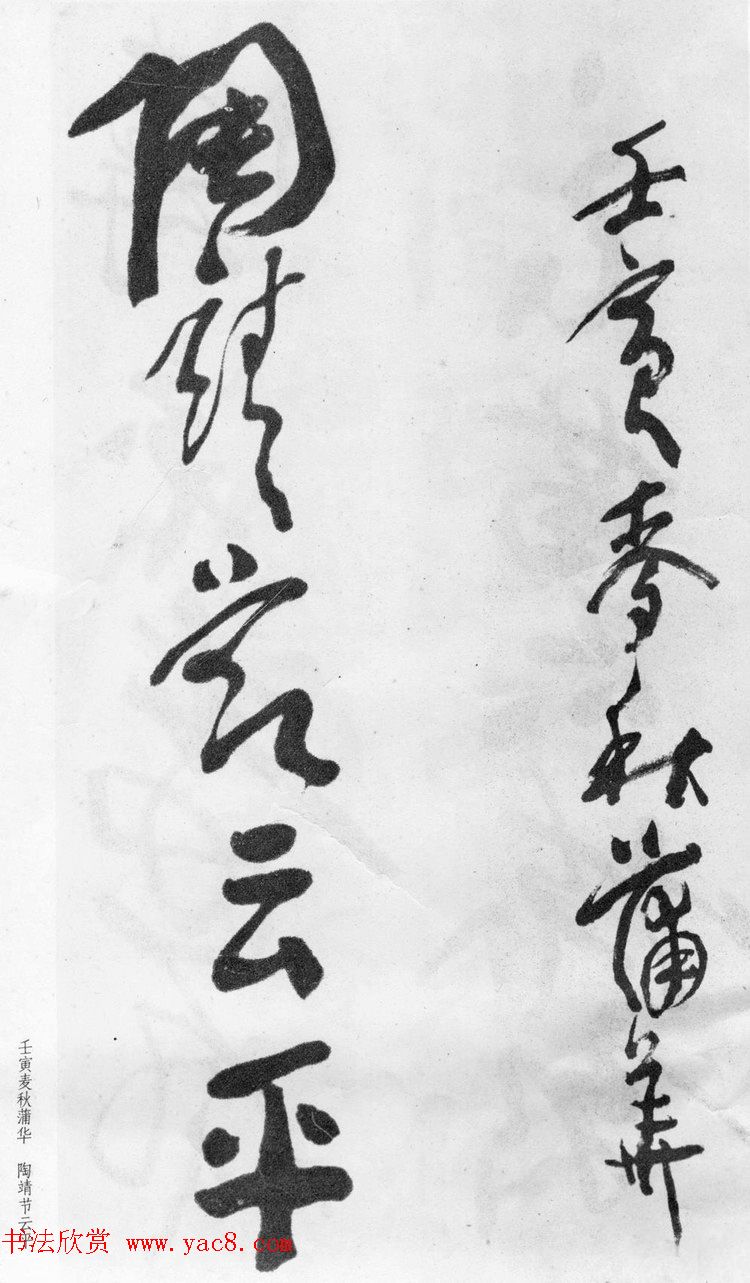 壬寅麥秋蒲華
陶靖节云平
壬寅麦秋蒲华 陶靖节云
书法欣赏 www.yac8.com